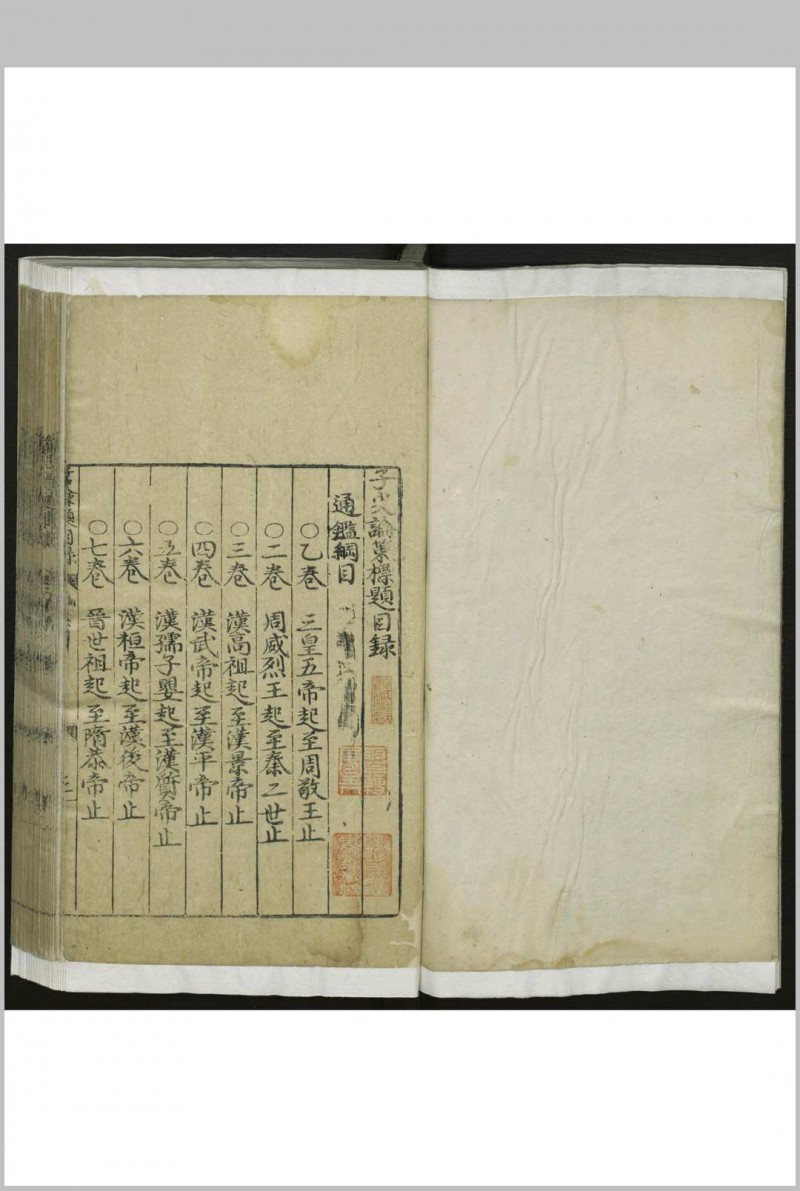 子史論策標題目録
通鑑綱目
〇乙巻 三皇五帝起至周敬王止
〇二巻 周威烈王起至秦二世止
〇三巻 漢高祖起至漢景帝止
〇四巻 漢武帝起至漢平帝止
〇五巻 漢孺子嬰起至漢質帝止
〇六巻 漢桓帝起至漢後帝止
〇七巻 晉世祖起至隋恭帝止